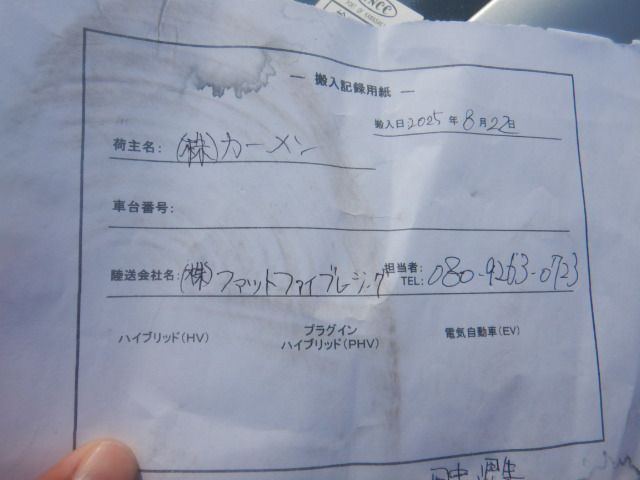 ― 搬入記録用紙 ―
搬入日 2025 年 8 月 22 日
荷主名： (株)カーメン
車台番号：
陸送会社名： (株)ファットファイブレーシング 担当者： TEL： 080-9263-0723
ハイブリッド（HV） プラグインハイブリッド（PHV） 電気自動車（EV）
田中